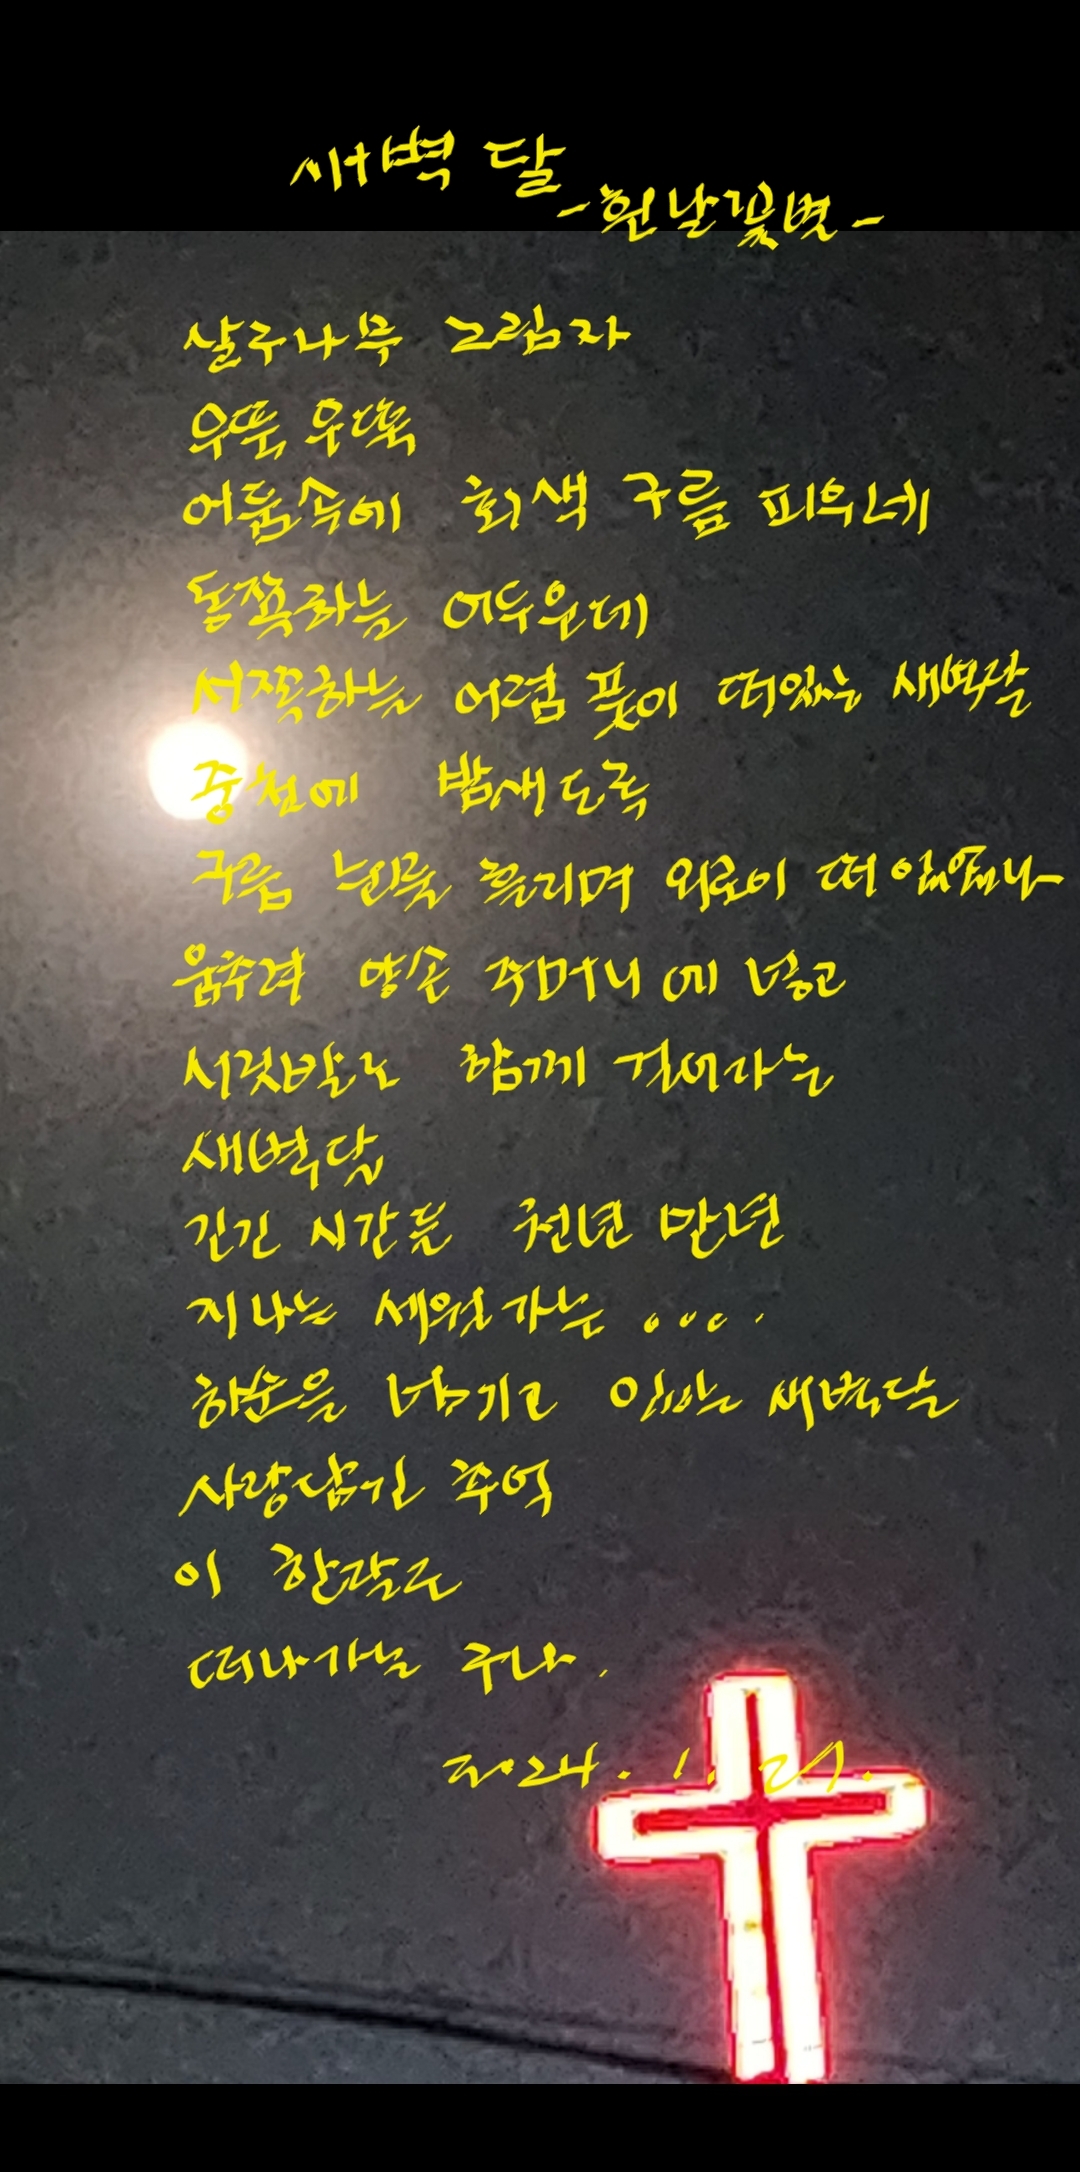 새벽 달
-흰날꽃별-
살구나무 그림자
우뚝 우뚝
어둠속에 회색 구름 피우네
동쪽하늘 어두운데
서쪽하늘 어렴풋이 떠있는 새벽달
중천에 밤새도록
구름 눈물 흘리며 외로이 떠 있었나
움추려 양손 주머니에 넣고
서릿발도 함께 걸어가는
새벽달
긴긴 시간들 천년 만년
지나는 세월가는 ....
하순을 넘기고 있는 새벽달
사랑담긴 추억
이 한달도
떠나가는 구나.
2024. 1. 21.